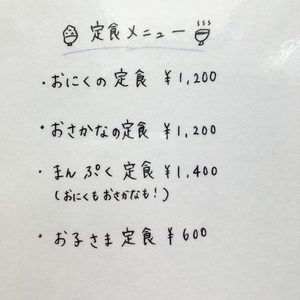 定食メニュー
・おにくの定食 ¥1,200
・おさかなの定食 ¥1,200
・まんぷく定食 ¥1,400
(おにくもおさかなも!)
・お子さま定食 ¥600